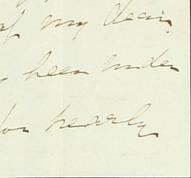 of my dear
been under
for nearly